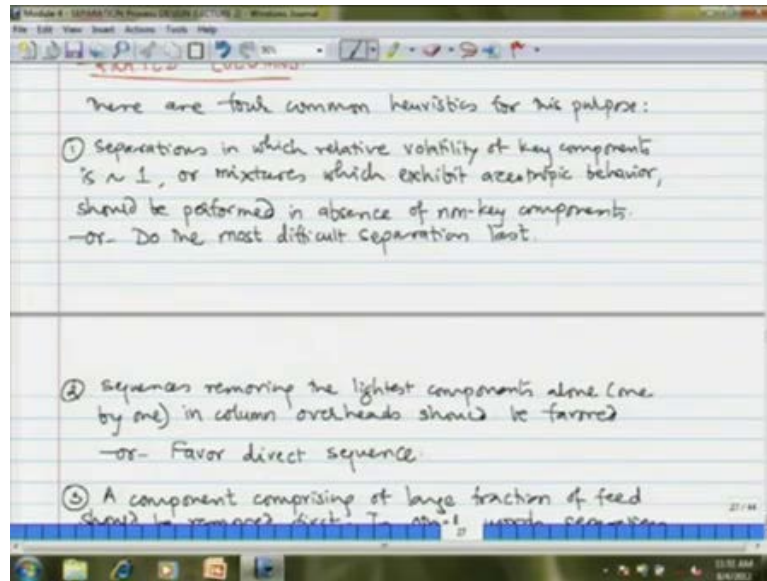 Module 4 - SEPARATION Process DESIGN (LECTURE 2) - Windows Journal
File Edit View Insert Actions Tools Help
COLUMNS.
There are four common heuristics for this purpose:
① Separations in which relative volatility of key components
is ~ 1, or mixtures which exhibit azeotropic behavior,
should be performed in absence of non-key components.
-or- Do the most difficult separation last.
② Sequences removing the lightest components alone (one
by one) in column overheads should be favored
-or- Favor direct sequence.
③ A component comprising of large fraction of feed
should be removed first. In words separation
27 / 44
27
11:01 AM
8/4/2012